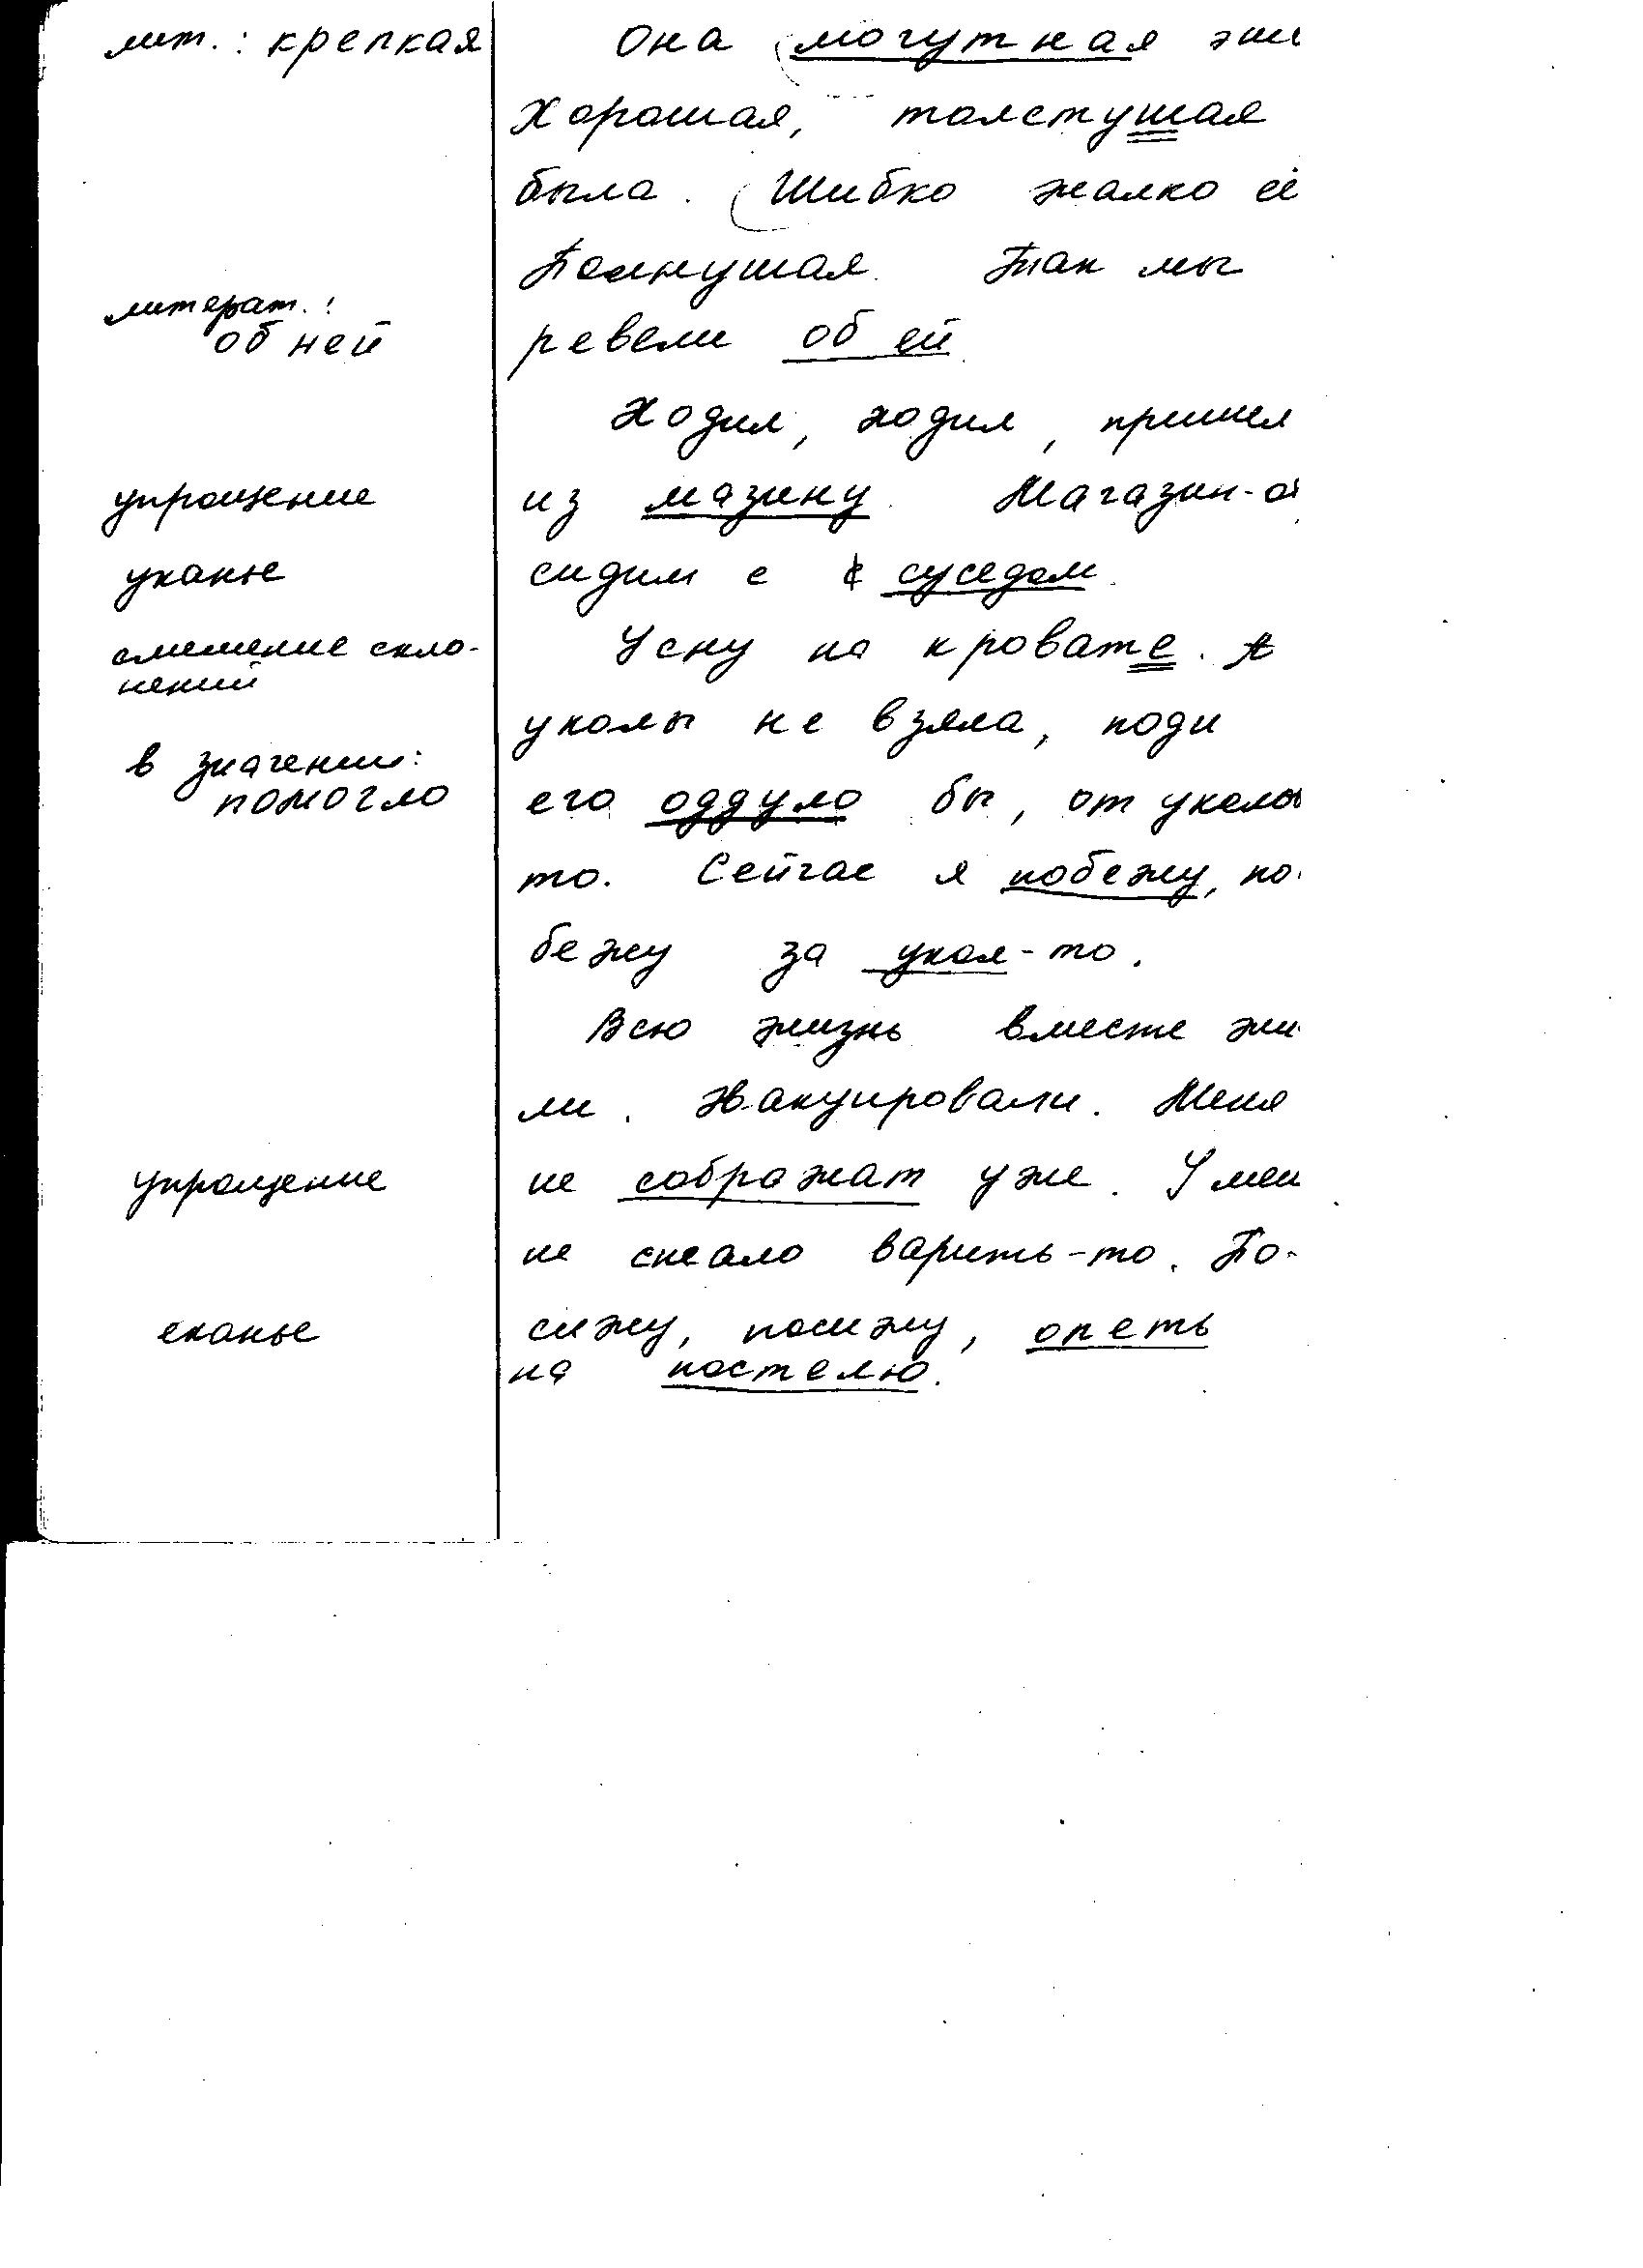 лит.: крепкая
Она могутная
Хорошая, толстушая
была. Шибко жалко её
Полнушая. Так мы
литерат.:
об ней
ревели об ей.
Ходил, ходил, пришел
упрощение
из мазину. Магазин-
уканье
сидим с суседом.
смешение скло-
нений
Усну на кровате. А
уколы не взяла, поди
в значении:
помогло
его оддуло бы, от уколы
то. Сейчас я побежу, по
бежу за укол-то.
Всю жизнь вместе жи
ли. Эвакуировали. Меня
упрощение
не сображат уже. У мен
не стало варить-то. По-
еканье
сижу, посижу, опеть
на постелю.